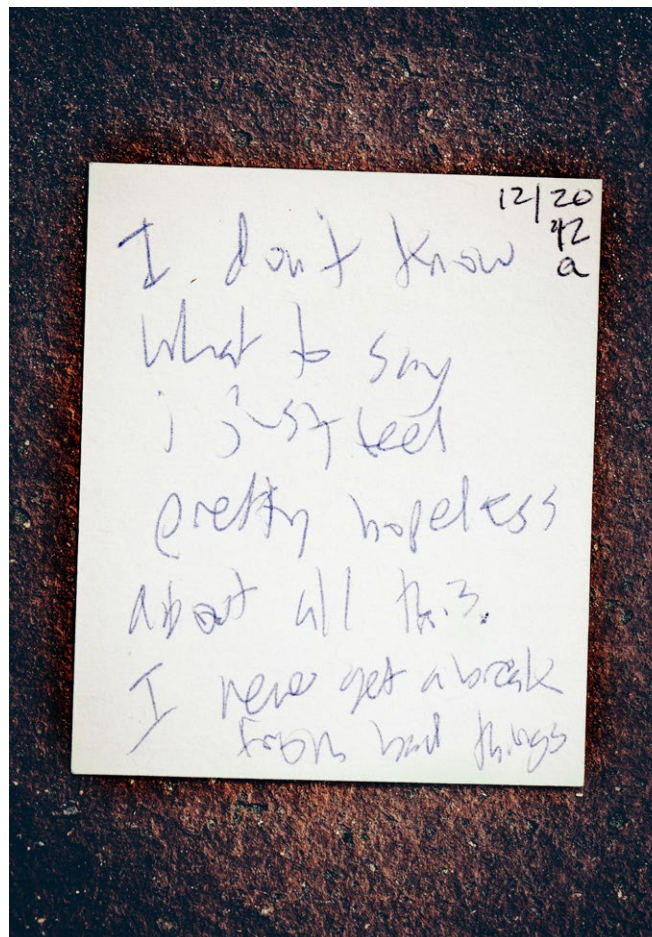 12/20
42
a
I don't know
what to say
i just feel
pretty hopeless
about all this.
I never get a break
from bad things